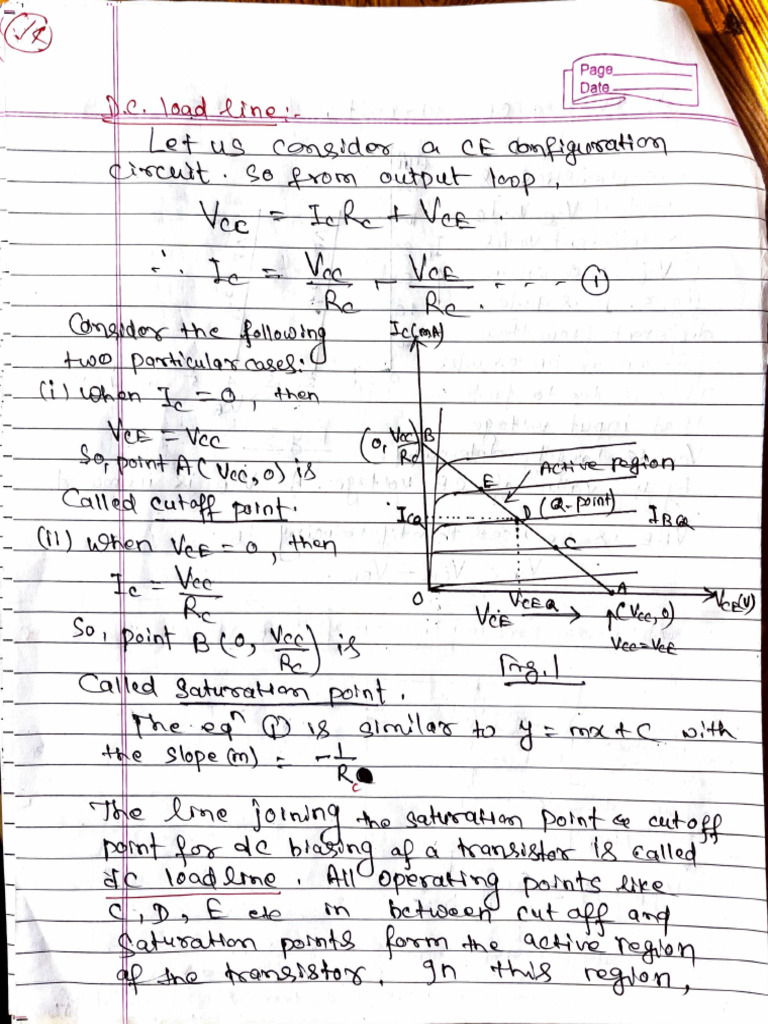 Page
Date
D.C. load line:-
Let us consider a CE configuration
circuit. So from output loop,
VCC = ICRC + VCE.
∴ IC = VCC/RC - VCE/RC. ---- ①
Consider the following
two particular cases:
(i) When IC = 0, then
VCE = VCC
So, point A(VCC, 0) is
Called cutoff point.
(ii) When VCE = 0, then
IC = VCC/RC
So, point B(0, VCC/RC) is
Called saturation point.
IC(mA)
(0, VCC/RC) B
Active region
E
D (Q-point)
ICQ
IBQ
C
O
VCEQ
A
VCE(V)
VCE →
(VCC, 0)
VCC=VCE
Fig.1
The eqn ① is similar to y = mx + C with
the slope(m) = -1/RC
The line joining the saturation point & cutoff
point for dc biasing of a transistor is called
dc load line. All operating points like
C, D, E etc in between cut off and
saturation points form the active region
of the transistor. In this region,